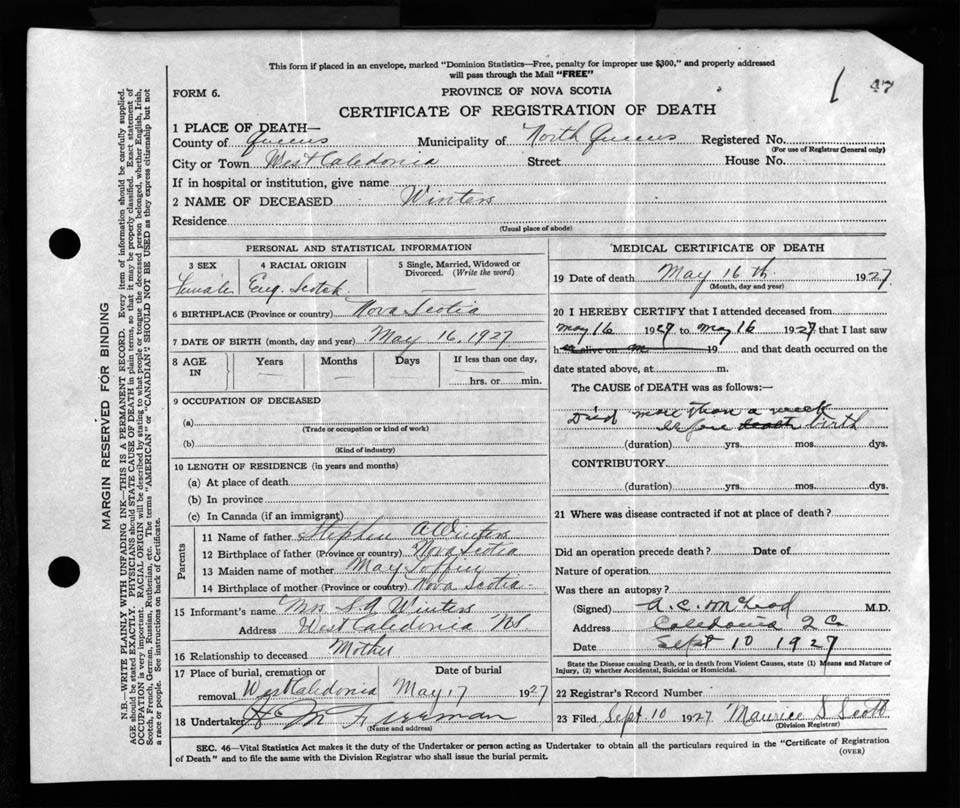 This form if placed in an envelope, marked "Dominion Statistics—Free, penalty for improper use $300," and properly addressed
will pass through the Mail "FREE"
FORM 6.
PROVINCE OF NOVA SCOTIA
47
CERTIFICATE OF REGISTRATION OF DEATH
1 PLACE OF DEATH—
County of Queens Municipality of North Queens Registered No.
(For use of Registrar General only)
City or Town West Caledonia Street House No.
If in hospital or institution, give name
2 NAME OF DECEASED Winters
Residence
(Usual place of abode)
PERSONAL AND STATISTICAL INFORMATION
3 SEX 4 RACIAL ORIGIN 5 Single, Married, Widowed or
Divorced. (Write the word)
Female Eng. Scotch
6 BIRTHPLACE (Province or country) Nova Scotia
7 DATE OF BIRTH (month, day and year) May 16, 1927
8 AGE IN Years Months Days If less than one day,
hrs. or min.
9 OCCUPATION OF DECEASED
(a)
(Trade or occupation or kind of work)
(b)
(Kind of industry)
10 LENGTH OF RESIDENCE (in years and months)
(a) At place of death
(b) In province
(c) In Canada (if an immigrant)
Parents
11 Name of father Stephen A Winters
12 Birthplace of father (Province or country) Nova Scotia
13 Maiden name of mother May
14 Birthplace of mother (Province or country) Nova Scotia -
15 Informant's name Mrs S. A Winters
Address West Caledonia NS
16 Relationship to deceased Mother
17 Place of burial, cremation or Date of burial
removal West Caledonia May 17 1927
18 Undertaker Freeman
(Name and address)
MEDICAL CERTIFICATE OF DEATH
19 Date of death May 16 th 1927
(Month, day and year)
20 I HEREBY CERTIFY that I attended deceased from
May 16 1927 to May 16 1927, that I last saw
h alive on 19 and that death occurred on the
date stated above, at m.
The CAUSE of DEATH was as follows:—
Died more than a week
before death birth
(duration) yrs. mos. dys.
CONTRIBUTORY
(duration) yrs. mos. dys.
21 Where was disease contracted if not at place of death?
Did an operation precede death? Date of
Nature of operation
Was there an autopsy?
(Signed) A. C. McLeod M.D.
Address Caledonia Q C.
Date Sept 10 1927
State the Disease causing Death, or in death from Violent Causes, state (1) Means and Nature of
Injury, (2) whether Accidental, Suicidal or Homicidal.
22 Registrar's Record Number
23 Filed Sept 10 1927 Maurice S Scott
(Division Registrar)
SEC. 46—Vital Statistics Act makes it the duty of the Undertaker or person acting as Undertaker to obtain all the particulars required in the "Certificate of Registration
of Death" and to file the same with the Division Registrar who shall issue the burial permit. (OVER)
MARGIN RESERVED FOR BINDING
N.B.—WRITE PLAINLY WITH UNFADING INK—THIS IS A PERMANENT RECORD. Every item of information should be carefully supplied.
AGE should be stated EXACTLY. PHYSICIANS should STATE CAUSE OF DEATH in plain terms, so that it may be properly classified. Exact statement of
OCCUPATION is very important. RACIAL ORIGIN will be described by stating to what people or tongue the deceased person belonged, whether English, Irish,
Scotch, French, German, Russian, Ruthenian, etc. The terms "AMERICAN" or "CANADIAN" SHOULD NOT BE USED as they express citizenship but not
a race or people. See instructions on back of Certificate.